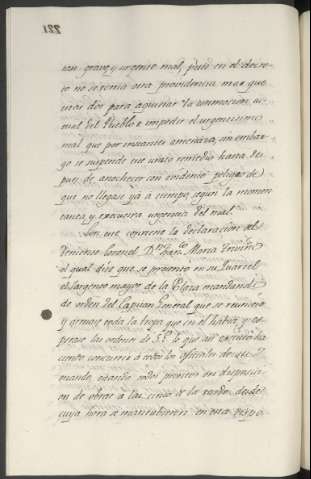 221
tan grave y urgente mal, pues en el decre
to no se venia otra providencia mas que
estas dos para aquietar la conmocion ac
tual del Pueblo e impedir el urgentisimo
mal que por instantes amenaza, sin embar
go se suspende este unico remedio hasta des
pues de anochecer con evidente peligro de
que no llegase ya á tiempo, segun la momen
tanea y executiva urgencia del mal.
Con esto conviene la declaracion del
Teniente Coronel Dn. Maria
el qual dice que se presentó en su Quartel
el Sargento mayor de la Plaza mandando
de orden del Capitan General que se reuniese
y armase toda la tropa que en el habia y es
perase las ordenes de S.E. lo que así executado
cuanto concurrio á todos los oficiales de su
mando, estando todos prontos en disposici
on de obrar á las cinco de la tarde, desde
cuya hora se mantubieron en este